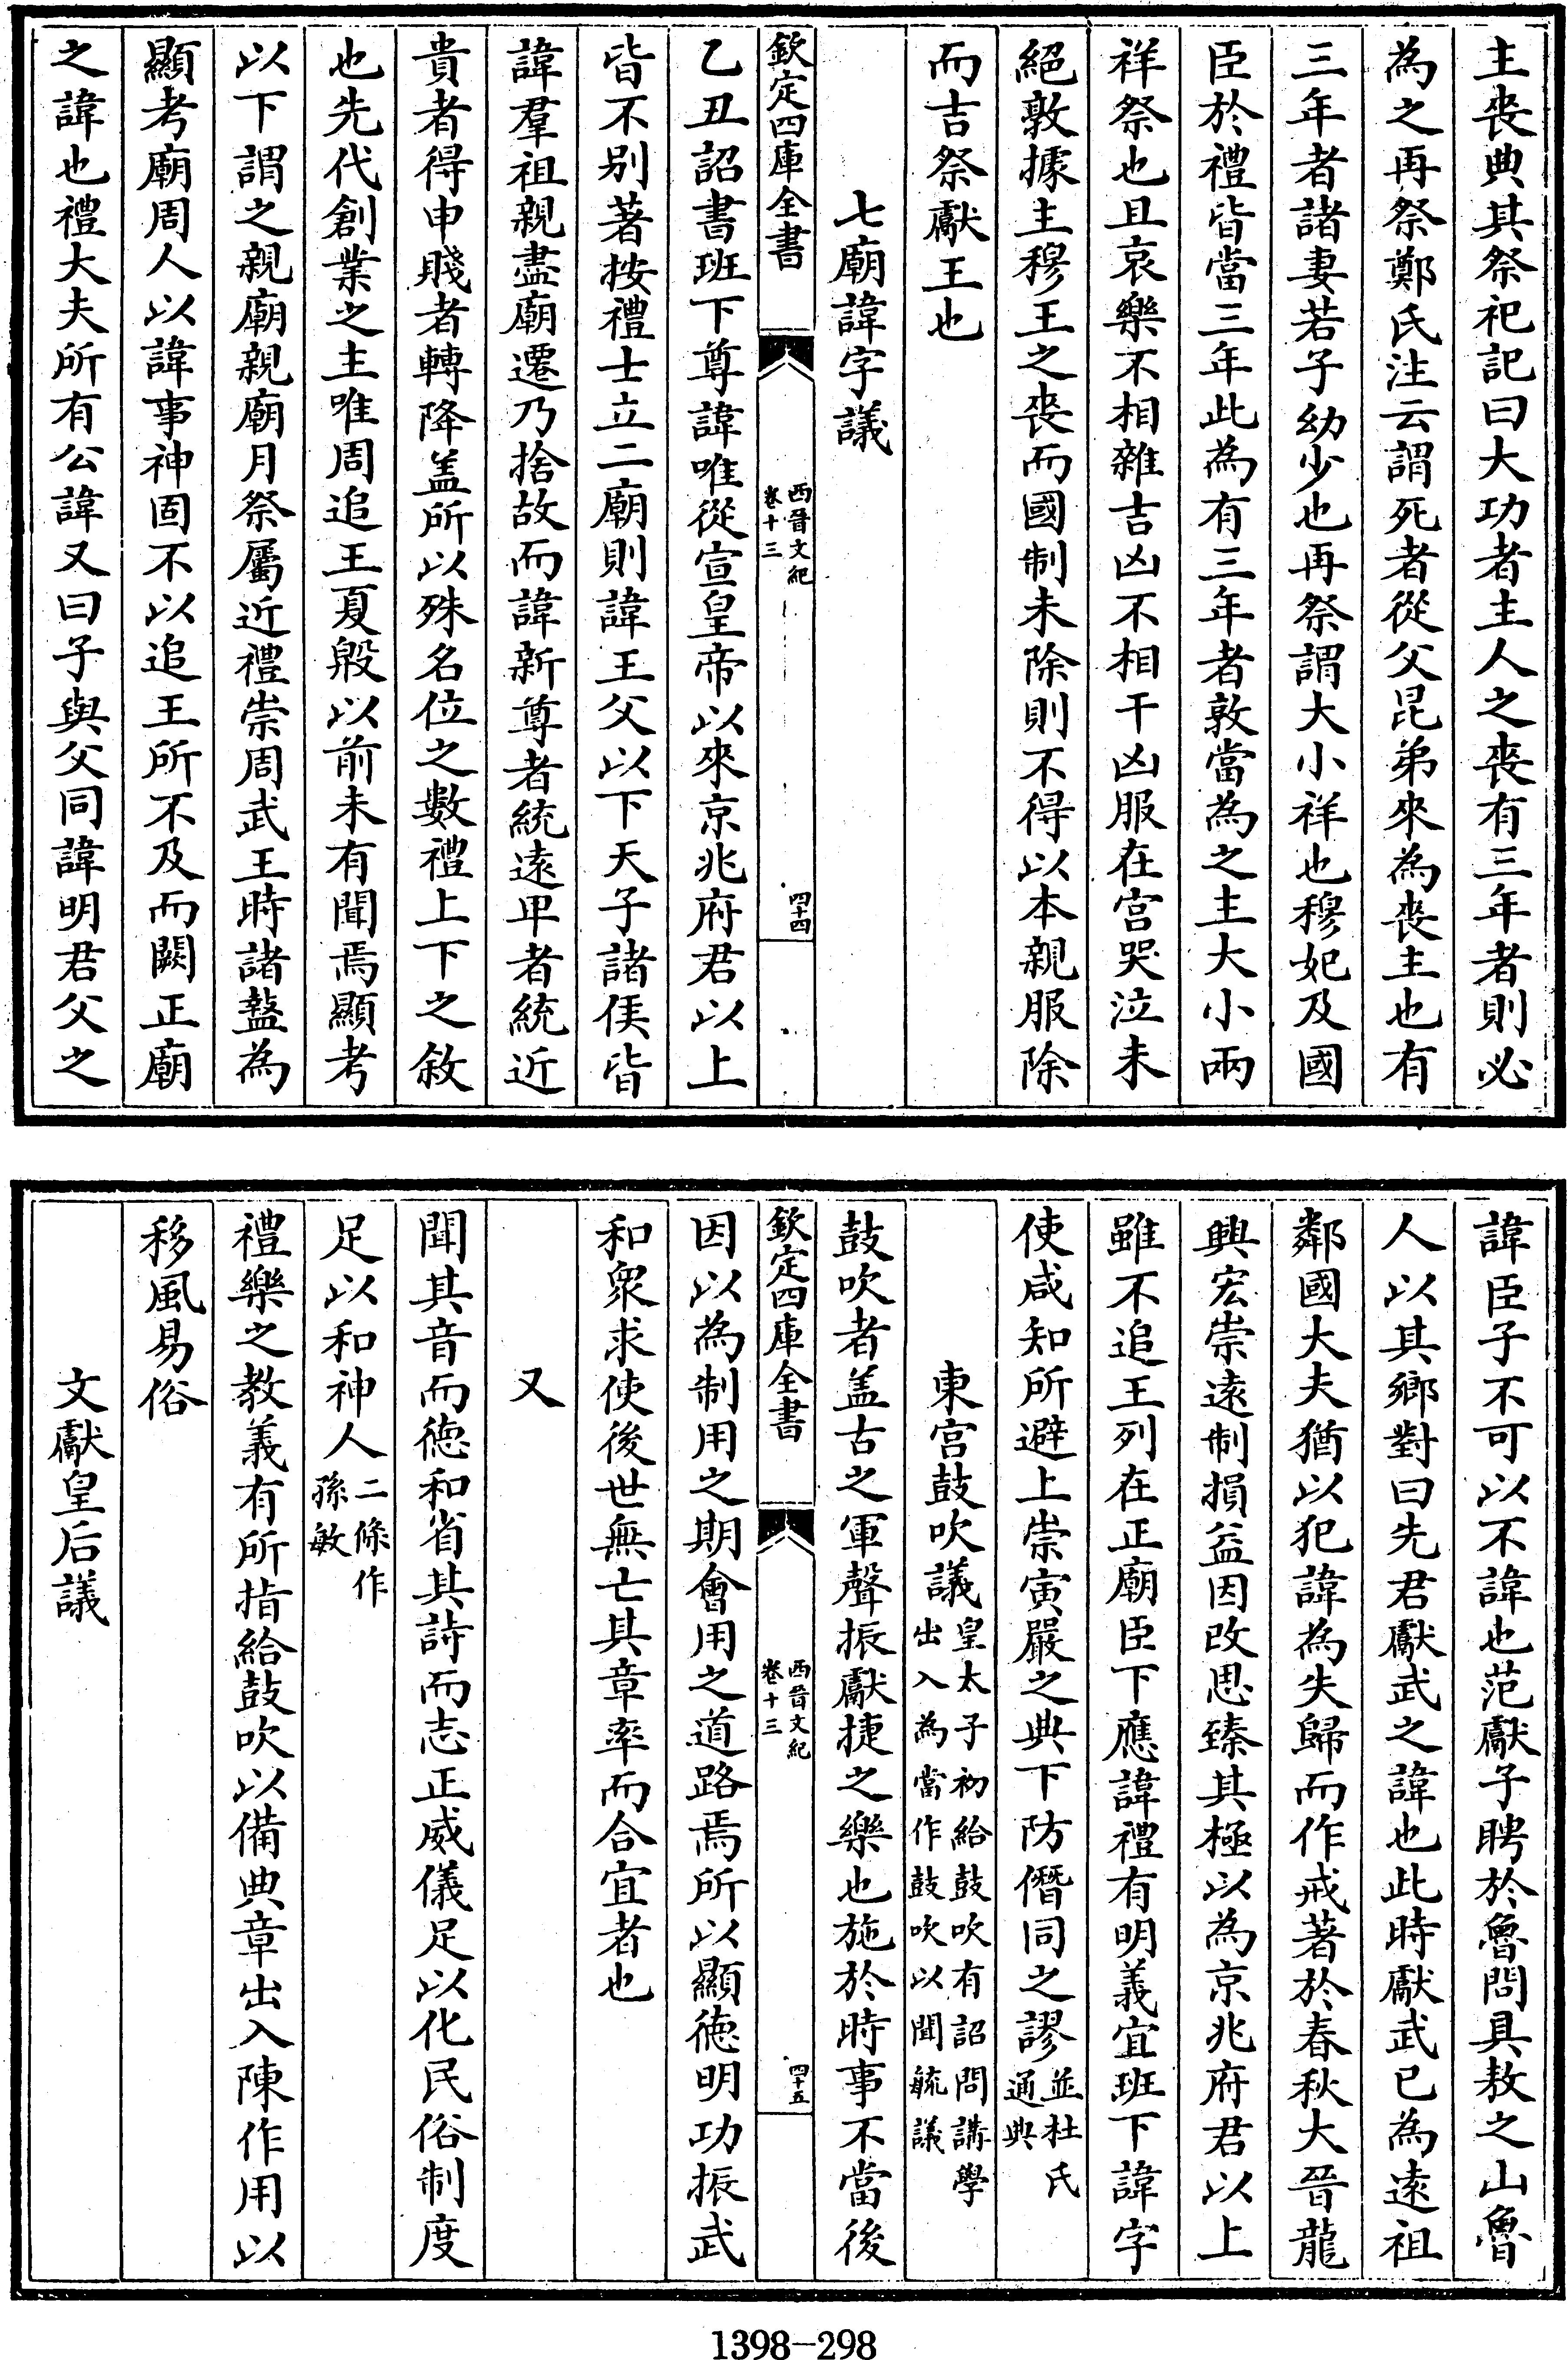 主喪典其祭祀記曰大功者主人之喪有三年者則必
為之再祭鄭氏注云謂死者從父昆弟來為喪主也有
三年者諸妻若子幼少也再祭謂大小祥也穆妃及國
臣於禮皆當三年此為有三年者敦當為之主大小兩
祥祭也且哀樂不相雜吉凶不相干凶服在宫哭泣未
絕敦據主穆王之喪而國制未除則不得以本親服除
而吉祭獻王也
七廟諱字議
欽定四庫全書
西晉文紀
卷十三
四十四
乙丑詔書班下尊諱唯從宣皇帝以來京兆府君以上
皆不别著按禮士立二廟則諱王父以下天子諸侯皆
諱羣祖親盡廟遷乃捨故而諱新尊者統遠卑者統近
貴者得申賤者轉降盖所以殊名位之數禮上下之敘
也先代創業之主唯周追王夏殷以前未有聞焉顯考
以下謂之親廟親廟月祭屬近禮崇周武王時諸盩為
顯考廟周人以諱事神固不以追王所不及而闕正廟
之諱也禮大夫所有公諱又曰子與父同諱明君父之
諱臣子不可以不諱也范獻子聘於魯問具敖之山魯
人以其鄉對曰先君獻武之諱也此時獻武已為遠祖
鄰國大夫猶以犯諱為失歸而作戒著於春秋大晉龍
興宏崇遠制損益因改思臻其極以為京兆府君以上
雖不追王列在正廟臣下應諱禮有明義宜班下諱字
使咸知所避上崇寅嚴之典下防僭同之謬並杜氏
通典
東宫鼓吹議皇太子初給鼓吹有詔問講學
出入為當作鼓吹以聞毓議
鼓吹者盖古之軍聲振獻捷之樂也施於時事不當後
欽定四庫全書
西晉文紀
卷十三
四十五
因以為制用之期會用之道路焉所以顯德明功振武
和衆求使後世無亡其章率而合宜者也
又
聞其音而德和省其詩而志正威儀足以化民俗制度
足以和神人二條作
孫敏
禮樂之教義有所指給鼓吹以備典章出入陳作用以
移風易俗
文獻皇后議
1398-298